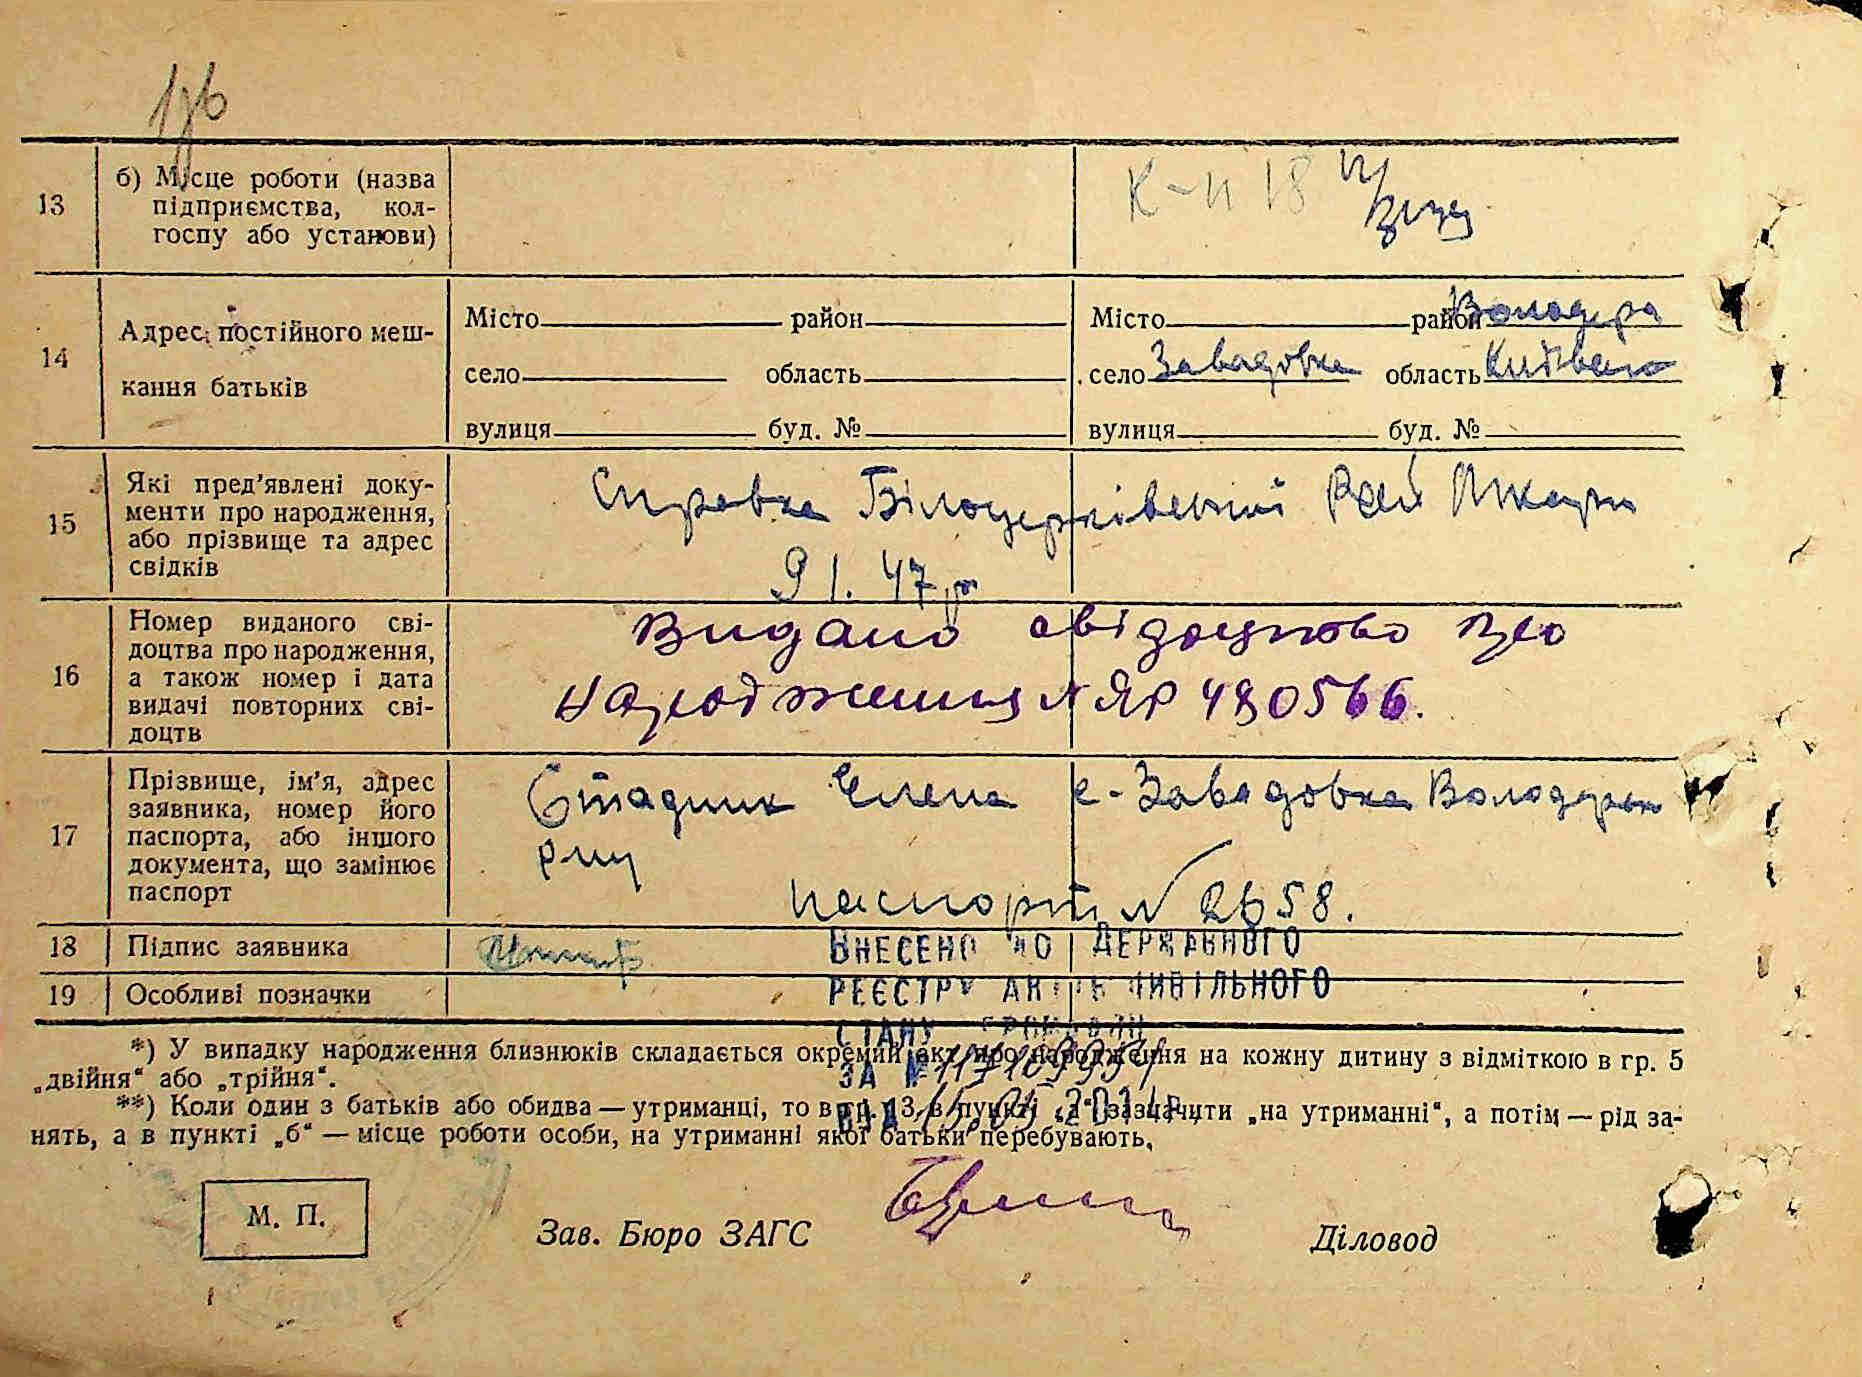 13
б) Місце роботи (назва
підприємства, кол-
госпу або установи)
К-п 18
14
Адрес постійного меш-
кання батьків
Місто район
село область
вулиця буд. №
Місто район Володарс
село Завадовка область Київська
вулиця буд. №
15
Які пред'явлені доку-
менти про народження,
або прізвище та адрес
свідків
Справка Білоцерківський Рай
9 1. 47 р
16
Номер виданого сві-
доцтва про народження,
а також номер і дата
видачі повторних сві-
доцтв
Видано свідоцтво про
народження № ЯР 480566.
17
Прізвище, ім'я, адрес
заявника, номер його
паспорта, або іншого
документа, що замінює
паспорт
Стадник Елена с-Завадовка Володарск
р-ну
паспорт № 2658.
18 Підпис заявника
19 Особливі позначки
ВНЕСЕНО ДО ДЕРЖАВНОГО
РЕЄСТРУ АКТІВ ЦИВІЛЬНОГО
СТАНУ ГРОМАДЯН
ЗА №
ВІД 15.05 2014р.
*) У випадку народження близнюків складається окремий акт про народження на кожну дитину з відміткою в гр. 5
„двійня“ або „трійня“.
**) Коли один з батьків або обидва — утриманці, то в гр. 13 в пункті „а“ зазначити „на утриманні“, а потім — рід за-
нять, а в пункті „б“ — місце роботи особи, на утриманні якої батьки перебувають.
М. П.
Зав. Бюро ЗАГС
Діловод